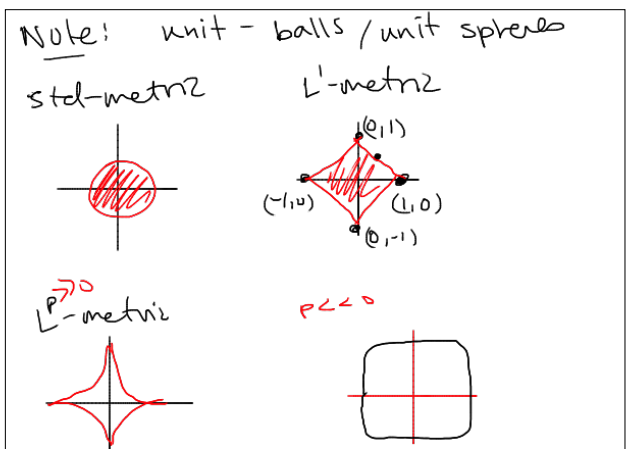 Note: unit - balls / unit spheres
std-metric
L¹-metric
(0,1)
(-1,0)
(1,0)
(0,-1)
p>>0
Lᵖ-metric
p<<0